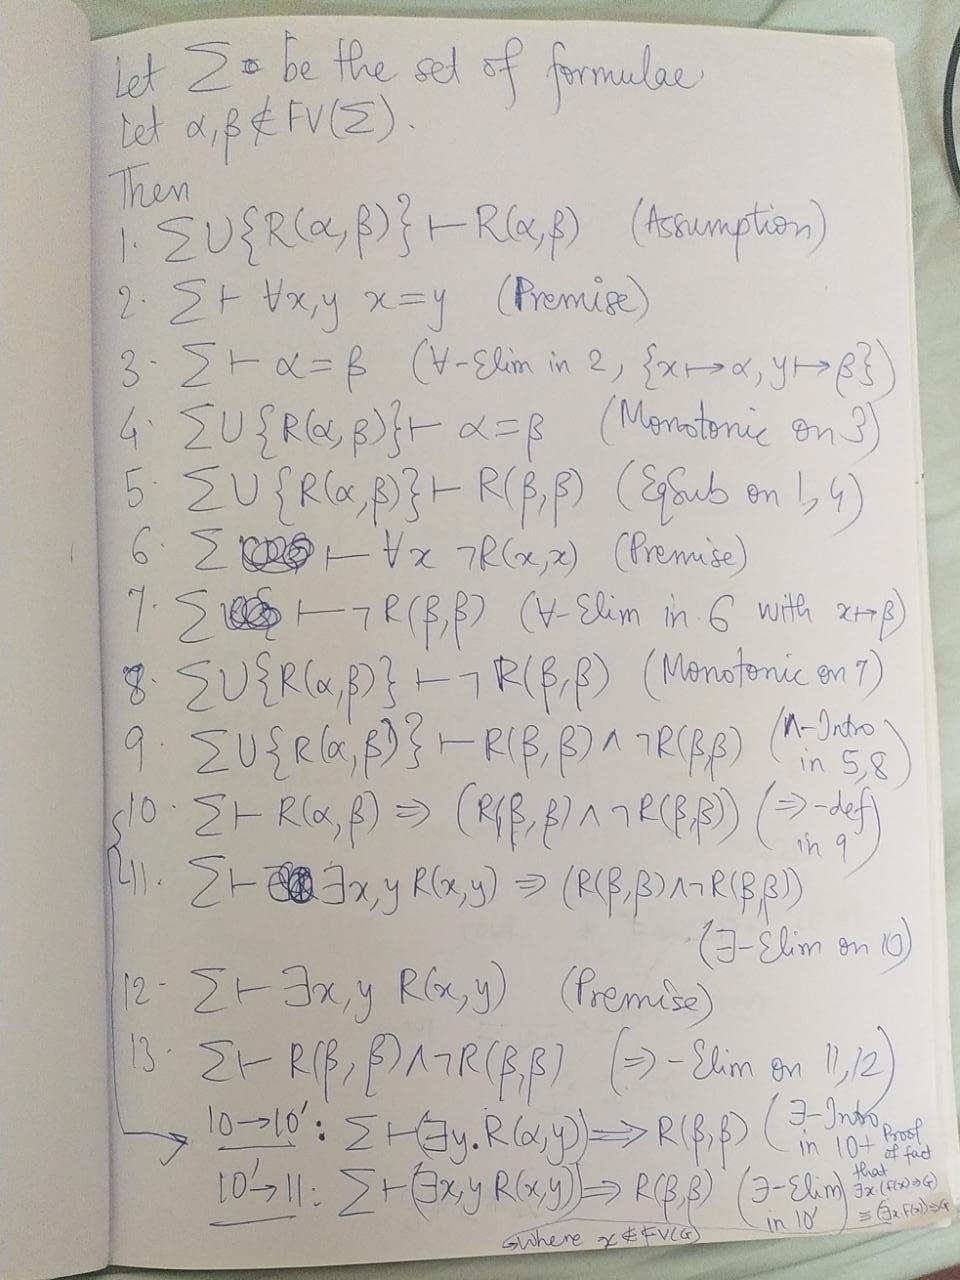 Let Σ be the set of formulae
Let α, β ∉ FV(Σ).
Then
1. Σ∪{R(α,β)} ⊢ R(α,β) (Assumption)
2. Σ ⊢ ∀x,y x=y (Premise)
3. Σ ⊢ α=β (∀-Elim in 2, {x↦α, y↦β})
4. Σ∪{R(α,β)} ⊢ α=β (Monotonic on 3)
5. Σ∪{R(α,β)} ⊢ R(β,β) (EqSub on 1,4)
6. Σ ⊢ ∀x ¬R(x,x) (Premise)
7. Σ ⊢ ¬R(β,β) (∀-Elim in 6 with x↦β)
8. Σ∪{R(α,β)} ⊢ ¬R(β,β) (Monotonic on 7)
9. Σ∪{R(α,β)} ⊢ R(β,β)∧¬R(β,β) (∧-Intro
in 5,8)
10. Σ ⊢ R(α,β) ⇒ (R(β,β)∧¬R(β,β)) (⇒-def
in 9)
11. Σ ⊢ ∃x,y R(x,y) ⇒ (R(β,β)∧¬R(β,β))
(∃-Elim on 10)
12. Σ ⊢ ∃x,y R(x,y) (Premise)
13. Σ ⊢ R(β,β)∧¬R(β,β) (⇒-Elim on 11,12)
10→10′: Σ ⊢ (∃y.R(α,y)) ⇒ R(β,β) (∃-Intro
in 10 + Proof
of fact
that
10′→11: Σ ⊢ (∃x,y R(x,y)) ⇒ R(β,β) (∃-Elim
in 10′)
∃x(F(x)⇒G)
≡(∃x F(x))⇒G
where x∉FV(G)